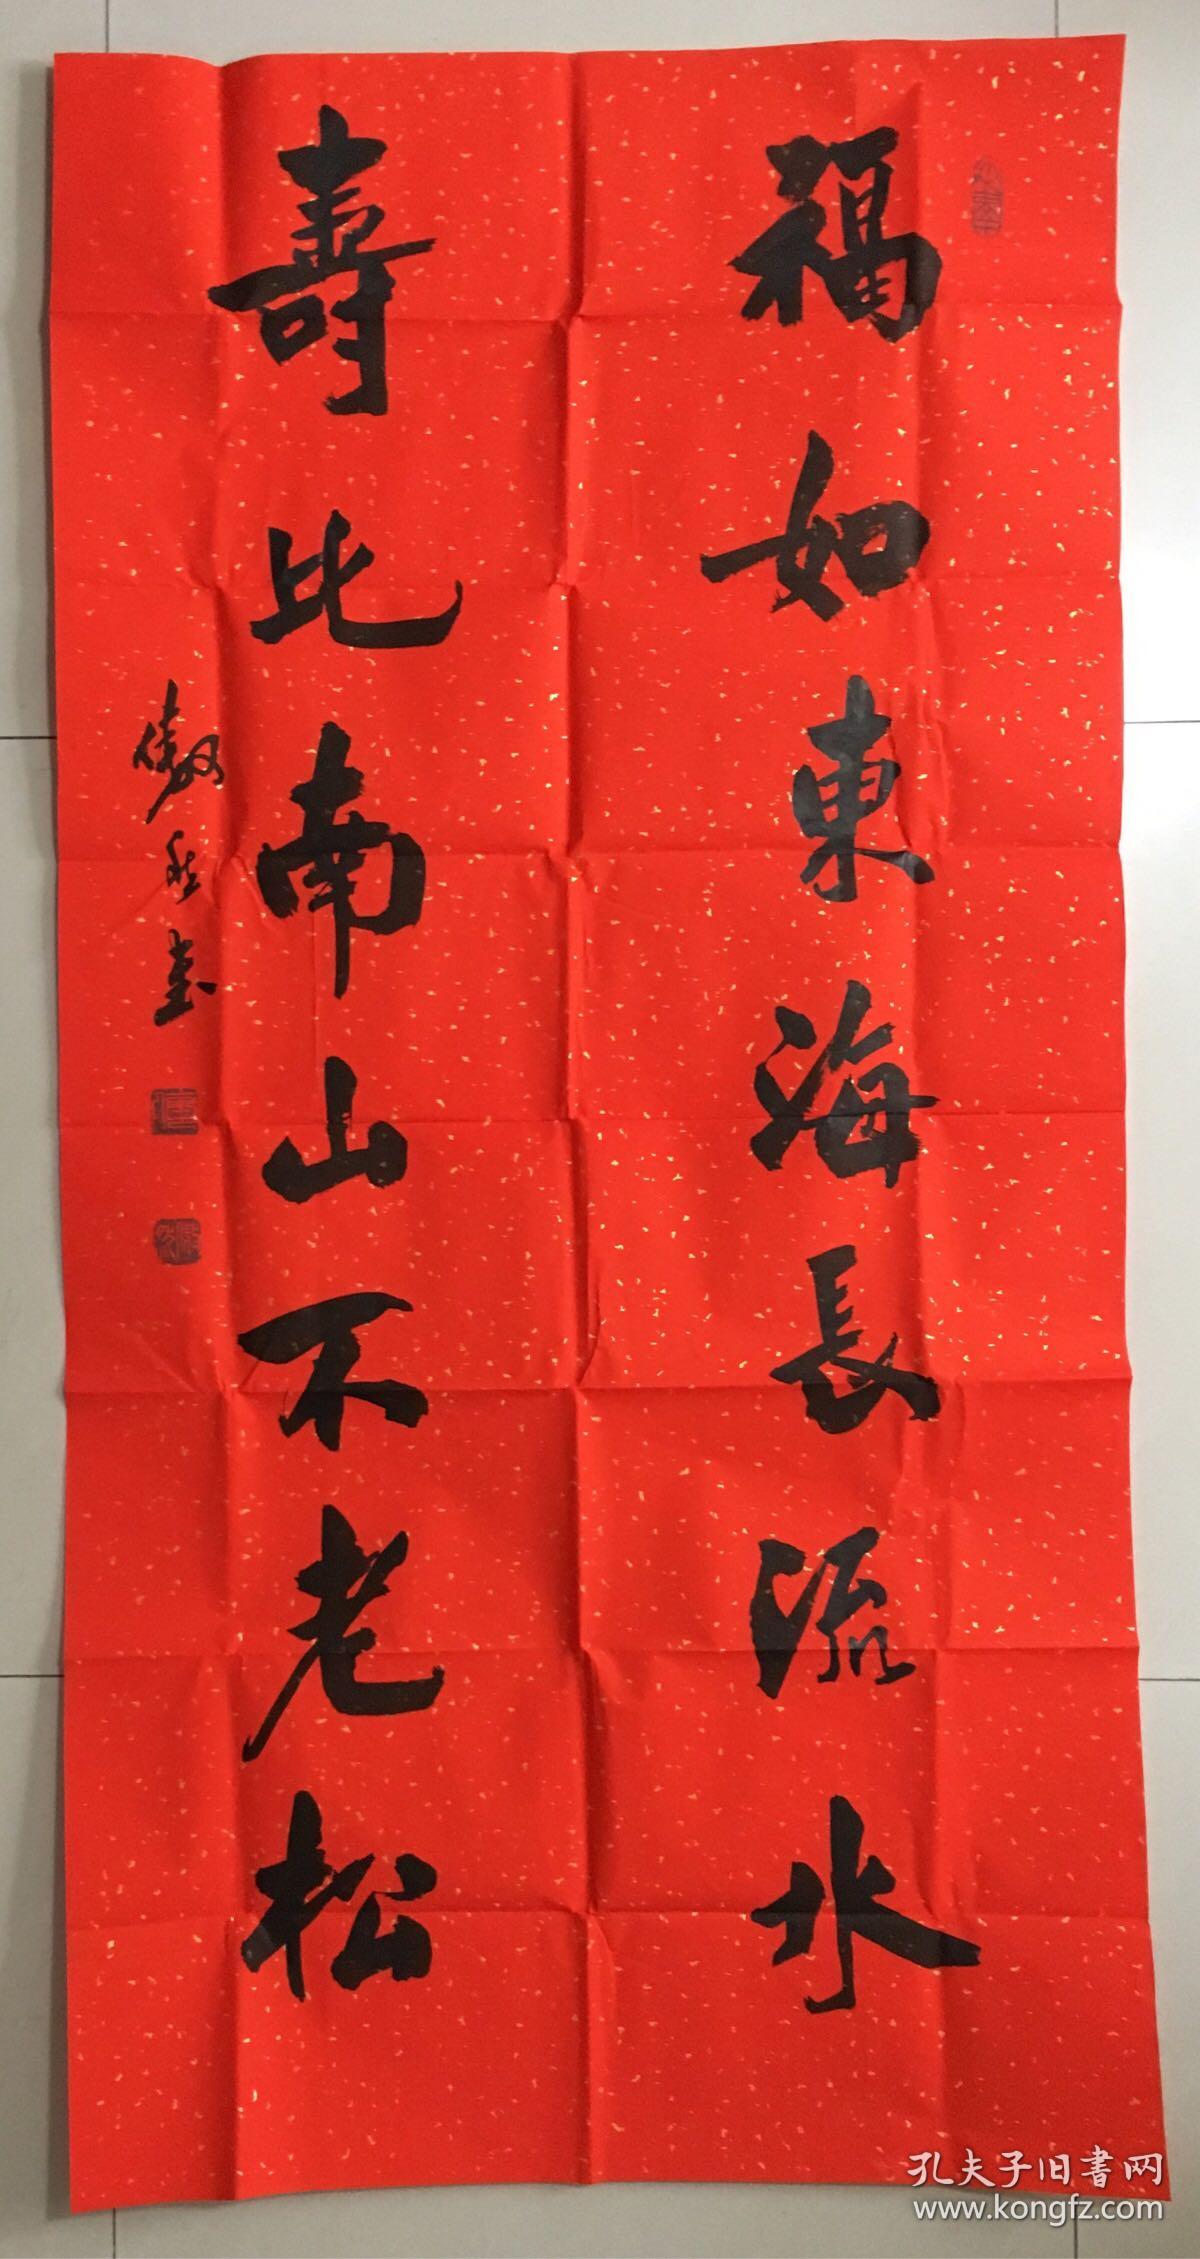 福如東海長流水
壽比南山不老松
傲秋書
孔夫子旧書网
www.kongfz.com